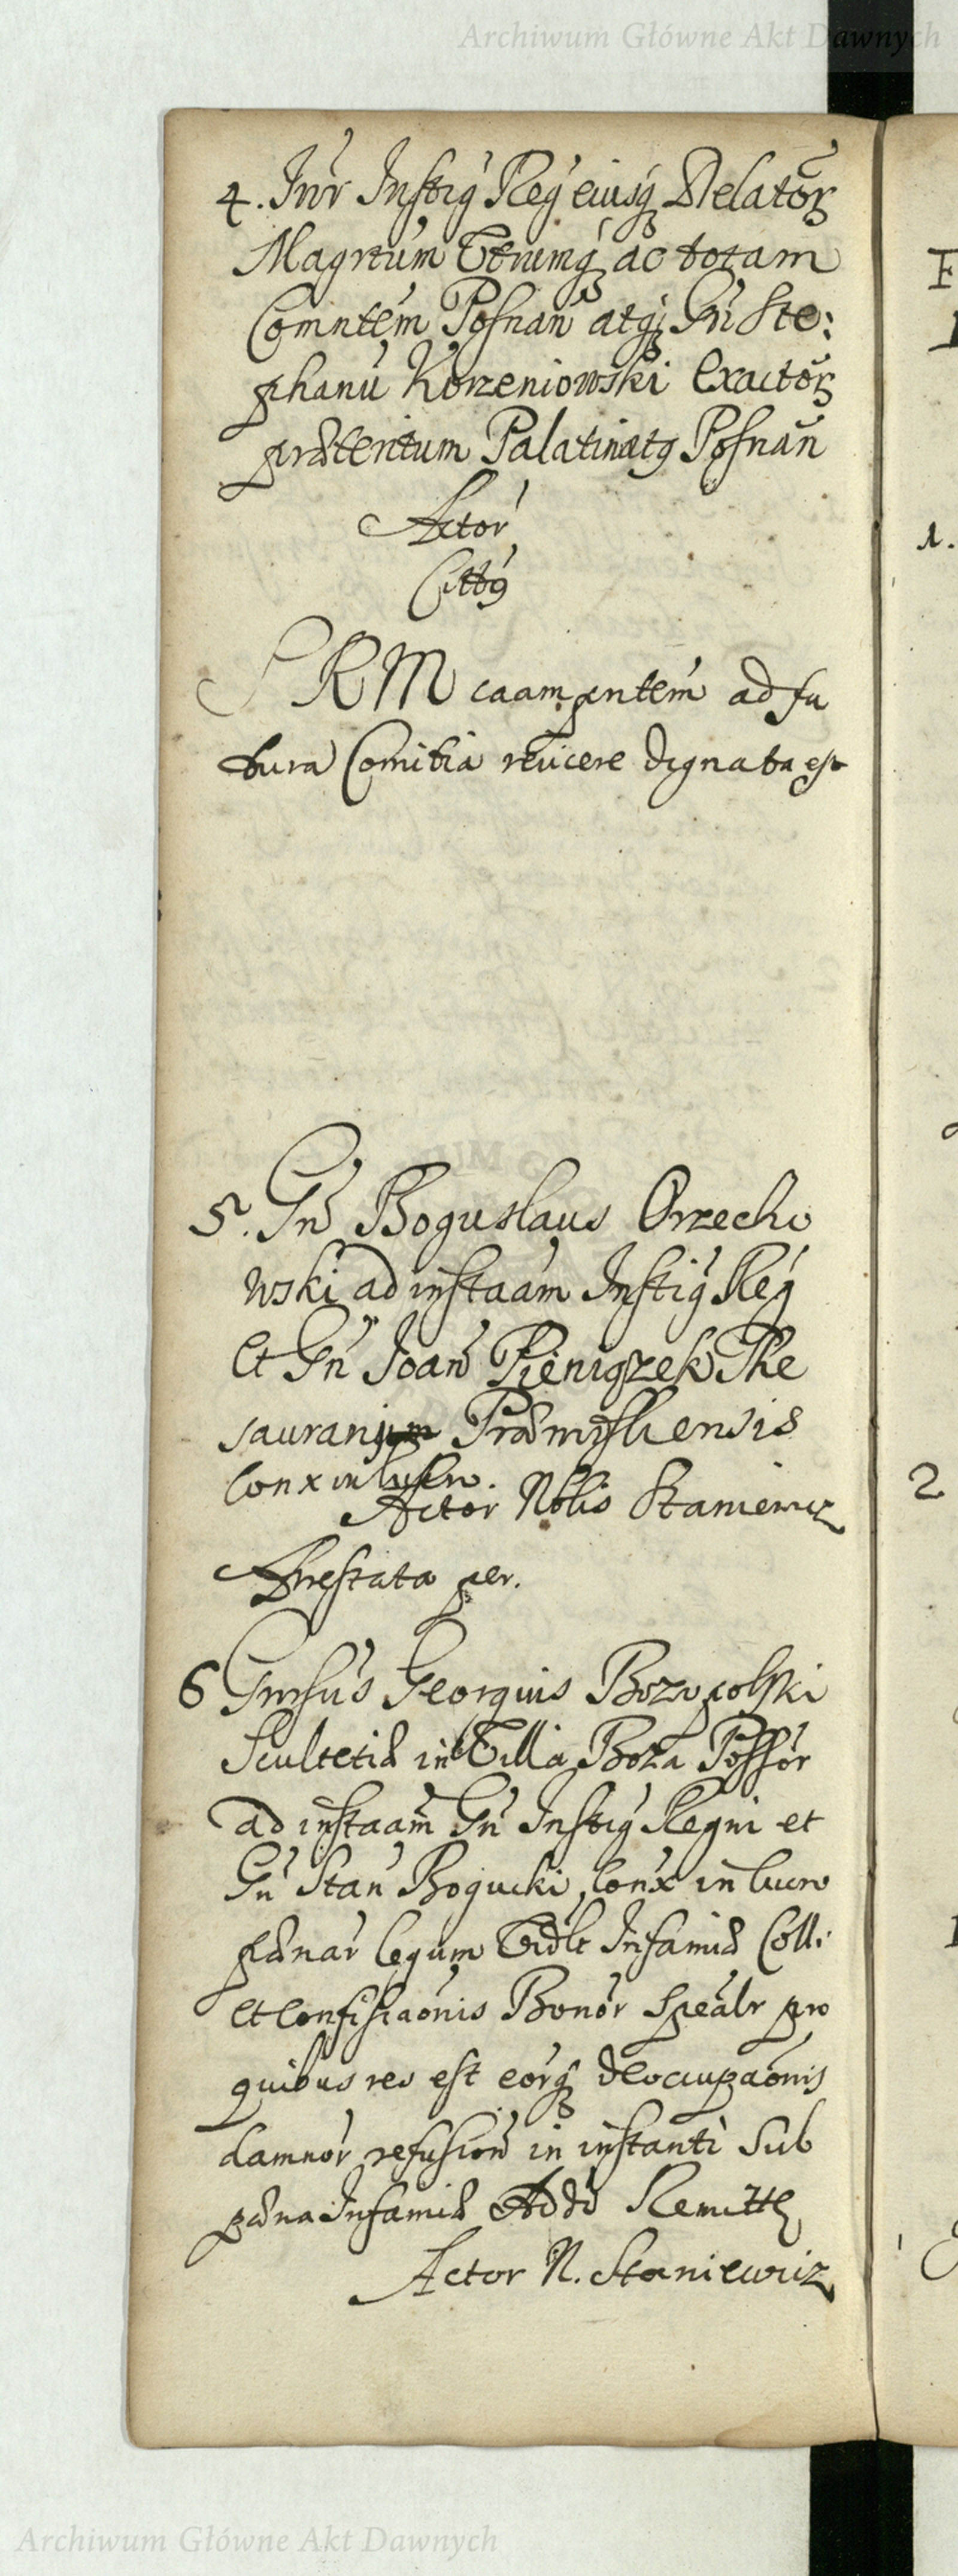 Archiwum Główne Akt Dawnych
4. Intr Instig Reg eiusq Delator
Magrtum Utrumq ac totam
Comntem Posnan atq Gn Ste:
phanu Korzeniowski Exactor
præteritum Palatinatg Posnan
Actor
Cittg
S R M caam pntem ad fu
tura Comitia reiicere dignata est
5. Gns Boguslaus Orzecho
wski ad instaam Instig Reg
Et Gn Joan Pieniązek The
saurarium Præmysliensis
Conx in lucro.
Actor Nblis Staniewicz
Arrestata per.
6 Gnrsus Georgius Bozopolski
Scultetiæ in Villa Boza Possor
ad instaam Gn Instig Regni et
Gn Stan Bogucki, Conx in lucro
pænar legum Vidlt Infamiæ Colli
et Confiscaonis Bonor Spealr pro
quibus reo est eorq deoccupaonis
damnor refusion in instanti Sub
pæna Infamiæ Addo Remitt
Actor N. Staniewicz
1.
2
Archiwum Główne Akt Dawnych